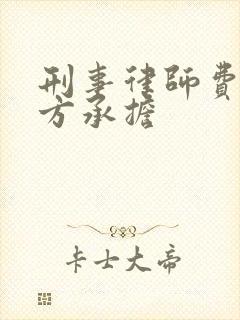 刑事律師費
方承擔
卡士大帝